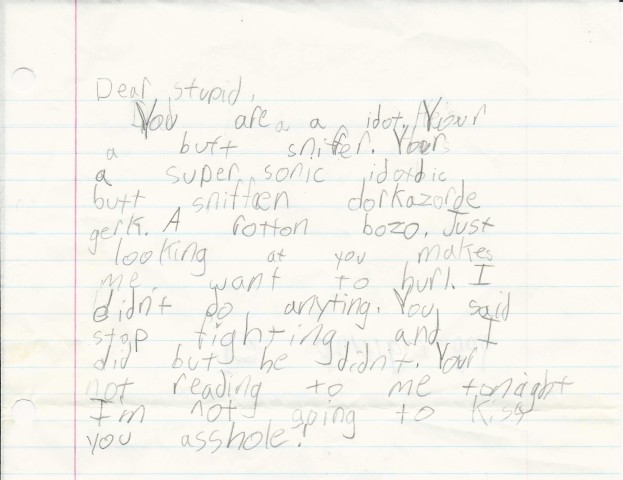 Dear stupid,
You are a a idot. Your
a butt sniffer. Yours
a super sonic idotbic
butt sniffen dorkazorde
gerk. A rotton bozo. Just
looking at you makes
me want to hurl. I
didn't do anyting. You said
stop fighting and I
did but he didn't. Your
not reading to me tonight
I'm not going to kiss
you asshole!